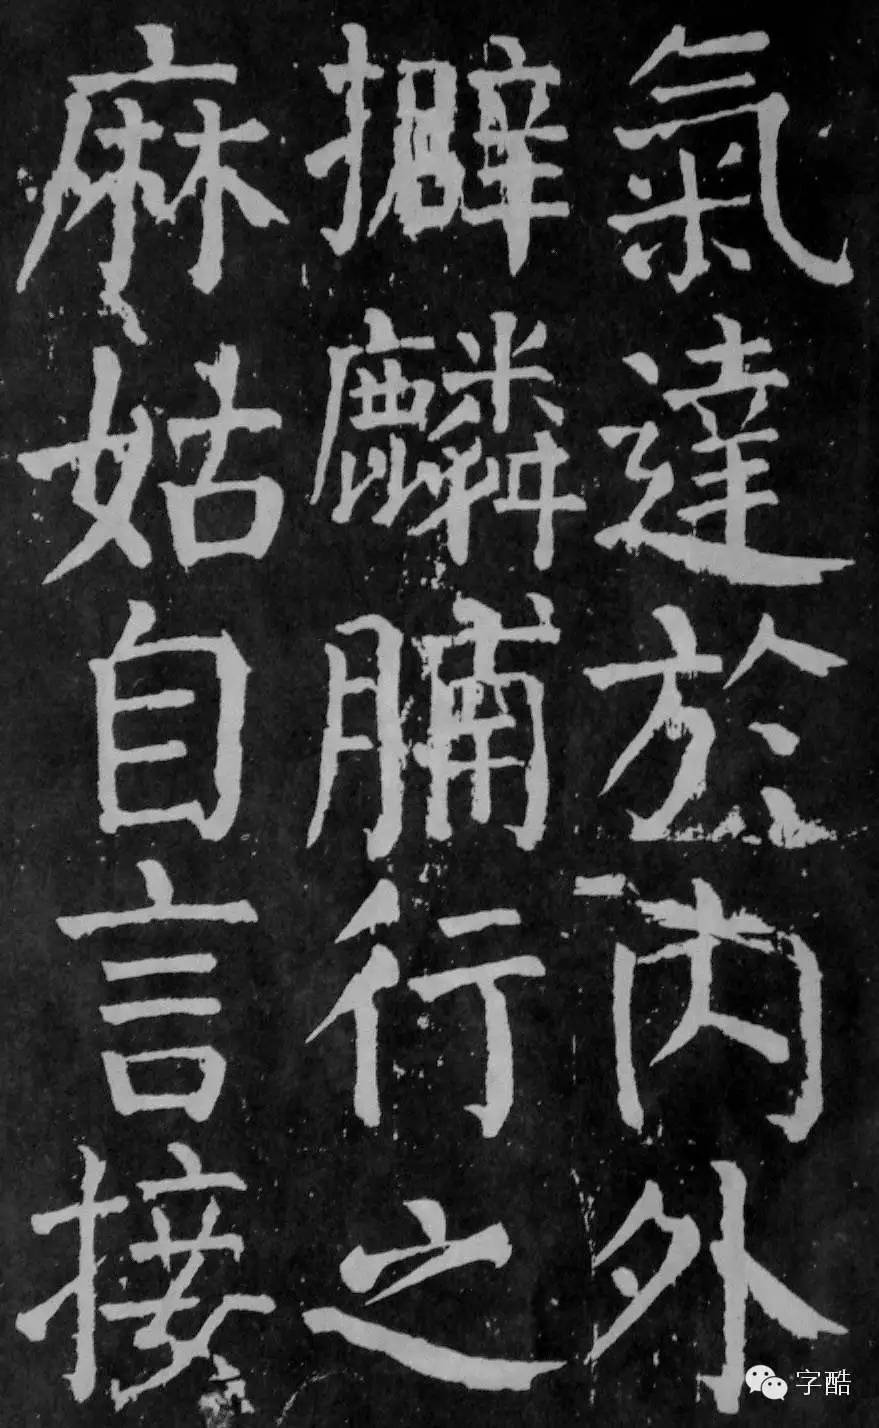 氣達於内外
擗麟脯行之
麻姑自言接
字酷